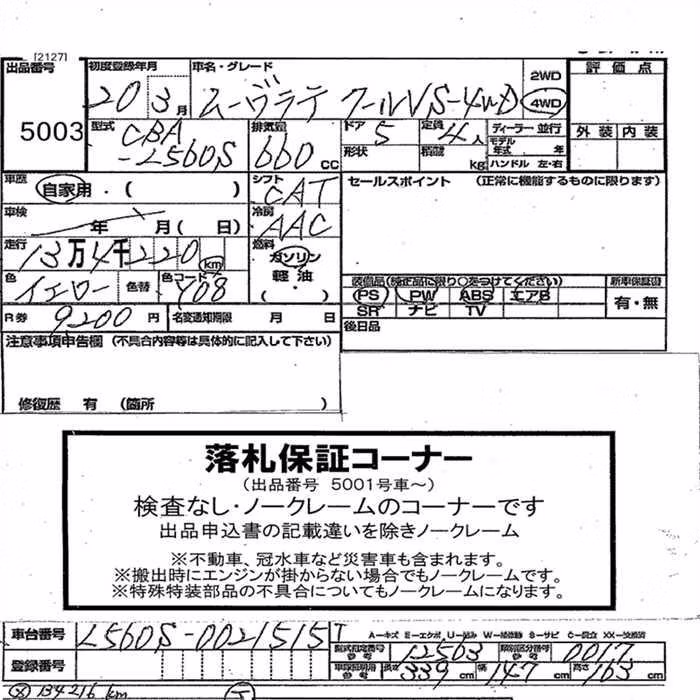 [2127]
出品番号 初度登録年月 車名・グレード 2WD 評価点
5003 20 3月 ムーヴラテ クールVS-4WD 4WD
型式 CBA-L560S 排気量 660 CC ドア 5 定員 4人 ディーラー 並行 外装 内装
形状 積載 kg モデル年式 年 ハンドル 左・右
車歴 自家用・( ) シフト CAT セールスポイント (正常に機能するものに限ります)
車検 年 月( 日) 冷房 AAC
走行 13万4千220 km 燃料 ガソリン
軽油 ( ・ )
色 イエロー 色替 色コード Y08
装備品(検定品に限り○をつけてください) 新車保証書
PS PW ABS エアB 有・無
SR ナビ TV
R券 9200円 名変通知期限 月 日 後日品
注意事項申告欄 (不具合内容等は具体的に記入して下さい)
修復歴 有 (箇所 )
落札保証コーナー
(出品番号 5001号車〜)
検査なし・ノークレームのコーナーです
出品申込書の記載違いを除きノークレーム
※不動車、冠水車など災害車も含まれます。
※搬出時にエンジンが掛からない場合でもノークレームです。
※特殊特装部品の不具合についてもノークレームになります。
車台番号 L560S-0021515 T
A-キズ E-エクボ U-凹み W-補修跡 S-サビ C-腐食 XX-交換済
型式指定番号 12503 類別区分番号 0017
登録番号 長さ 339cm 幅 147cm 高さ 163cm
134216 km